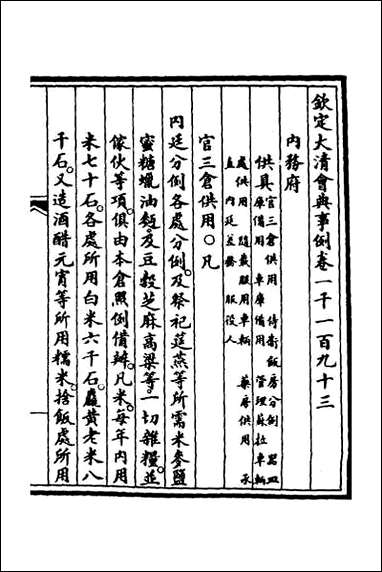 欽定大清會典事例卷一千一百九十三
內務府
供具官三倉供用 侍衛飯房分例 器皿
庫備用 車庫備用 管理蘇拉車輛
處供用隨義服用車輛 藥房供用 承
直 內廷並發服役人
官三倉供用〇凡
內廷分例各處分例。及祭祀筵燕等所需米麥鹽
蜜糖蠟油麪。及豆穀芝麻高粱等。一切雜糧。並
傢伙等項。俱由本倉照例備辦。凡米。每年內用
米七十石。各處所用白米六千石。麤黃老米八
千石。又造酒醋元宵等所用糯米。捨飯處所用